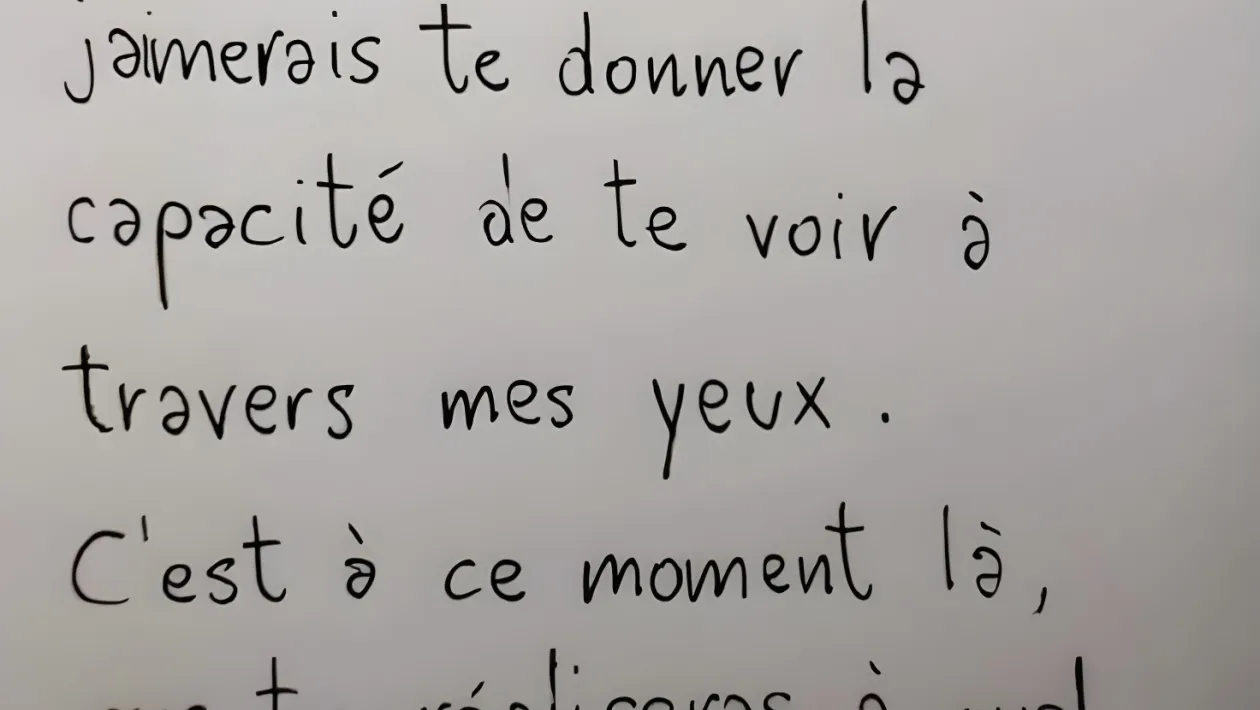 jaimerais te donner la
capacité de te voir à
travers mes yeux .
C'est à ce moment là,